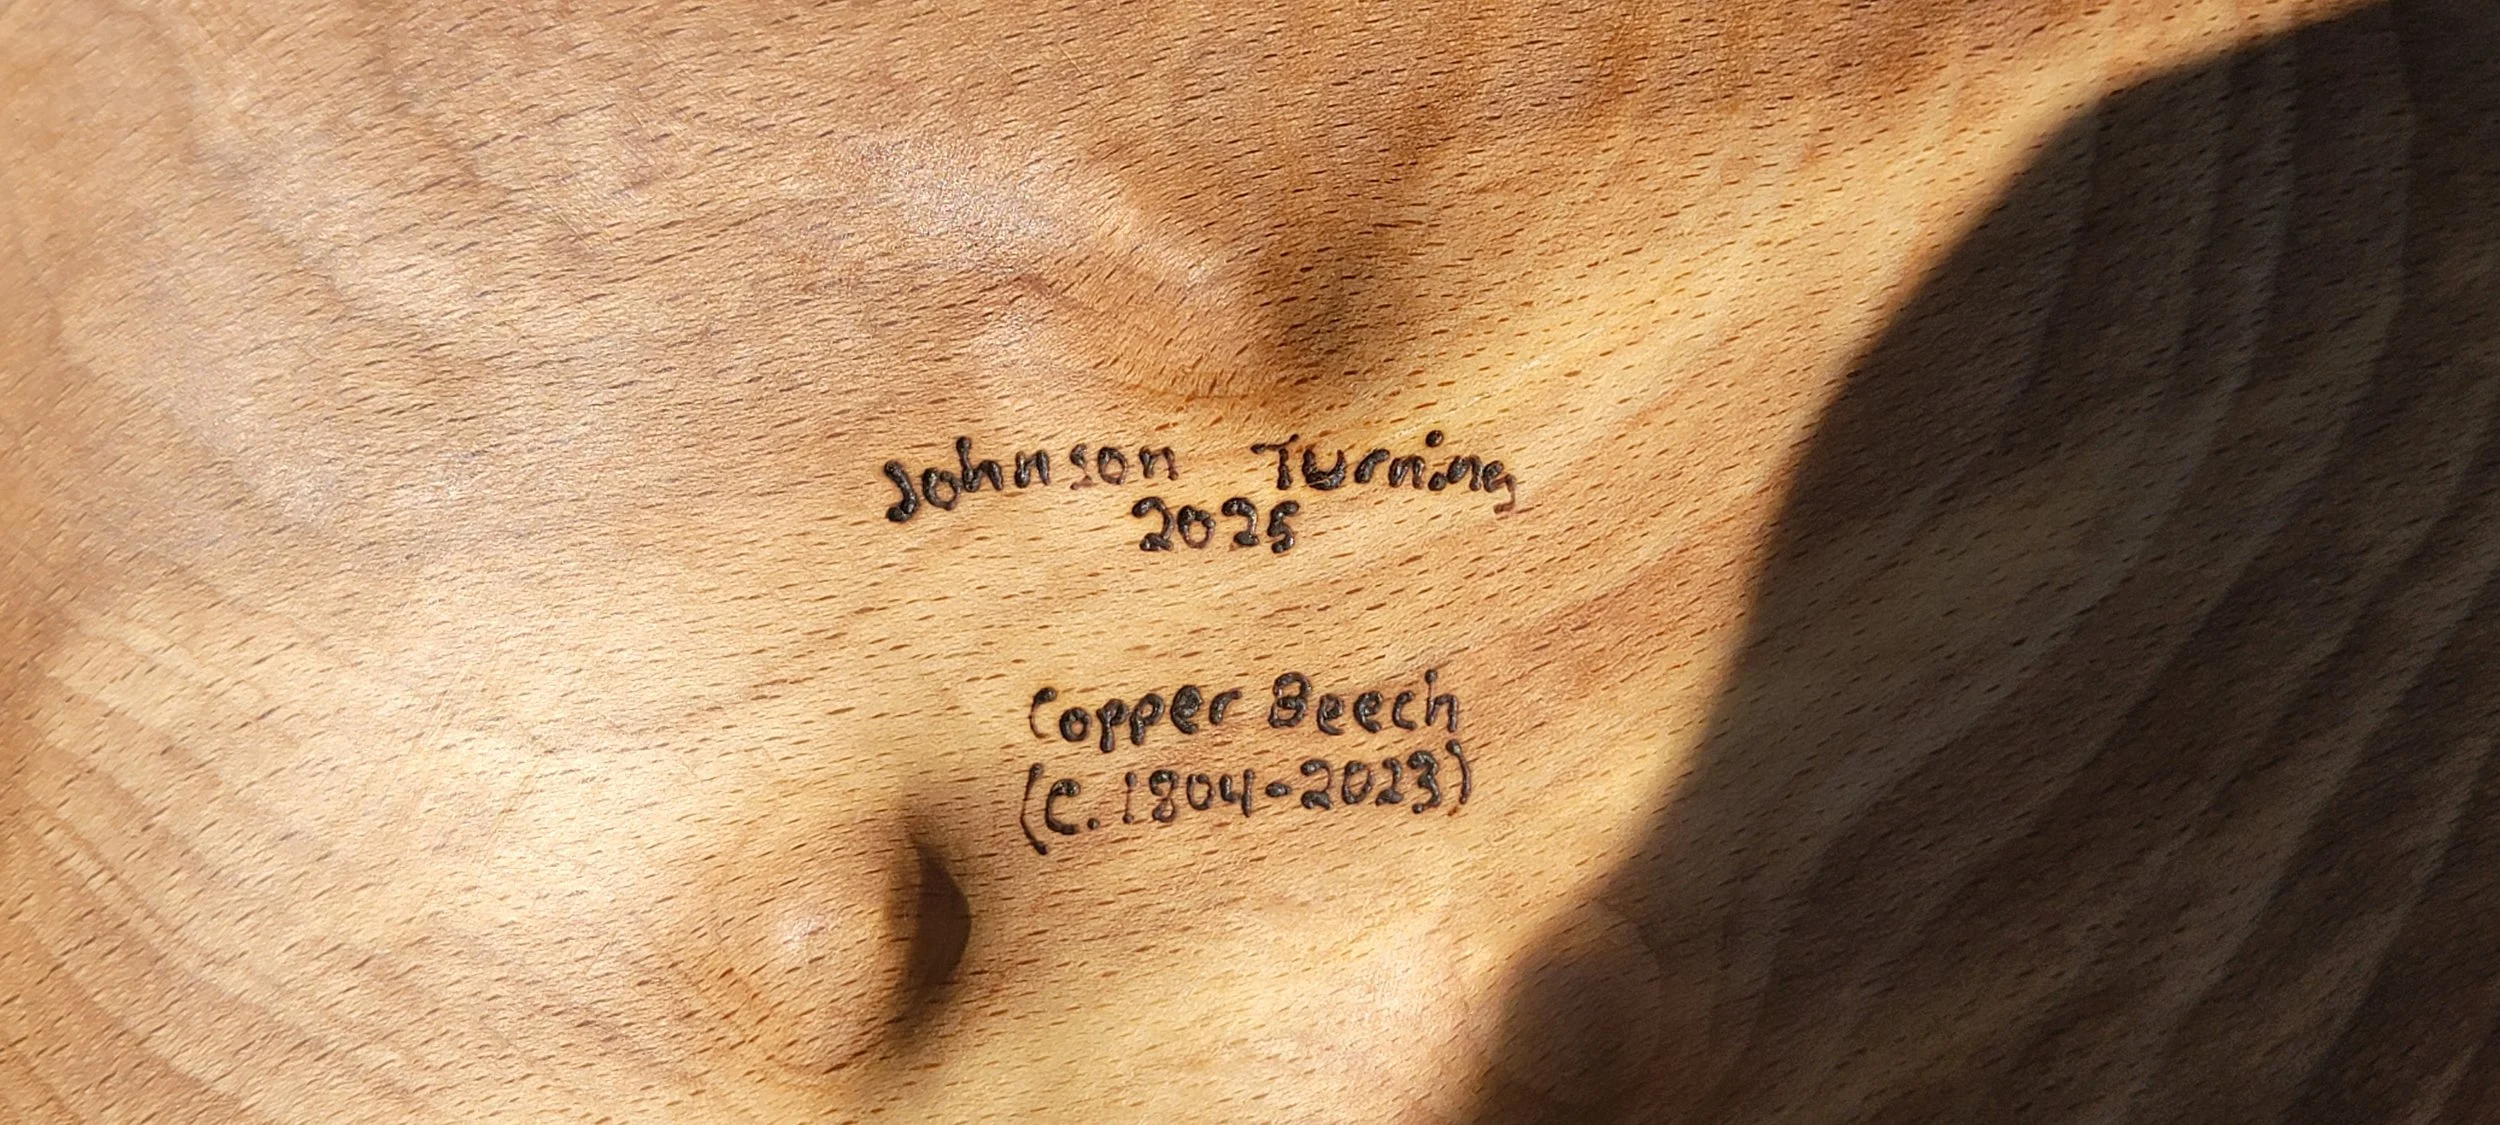 Johnson Turning
2025
Copper Beech
(C. 1804-2023)